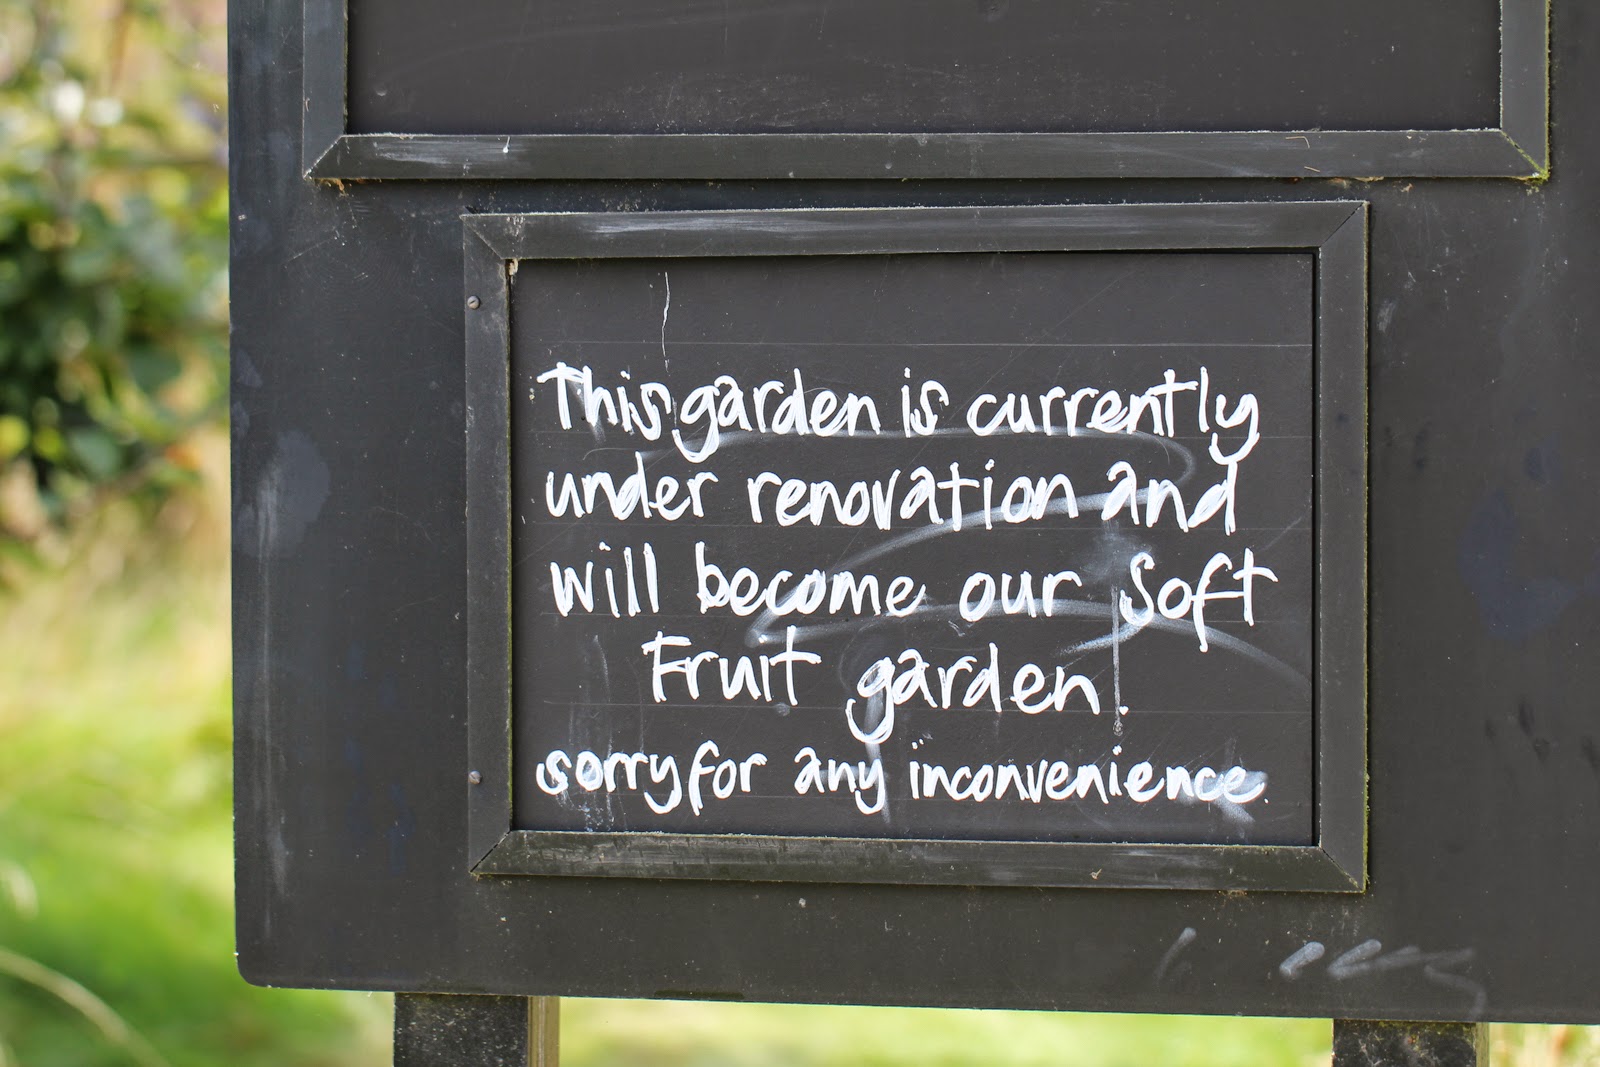 This garden is currently
under renovation and
will become our Soft
Fruit garden.
sorry for any inconvenience.